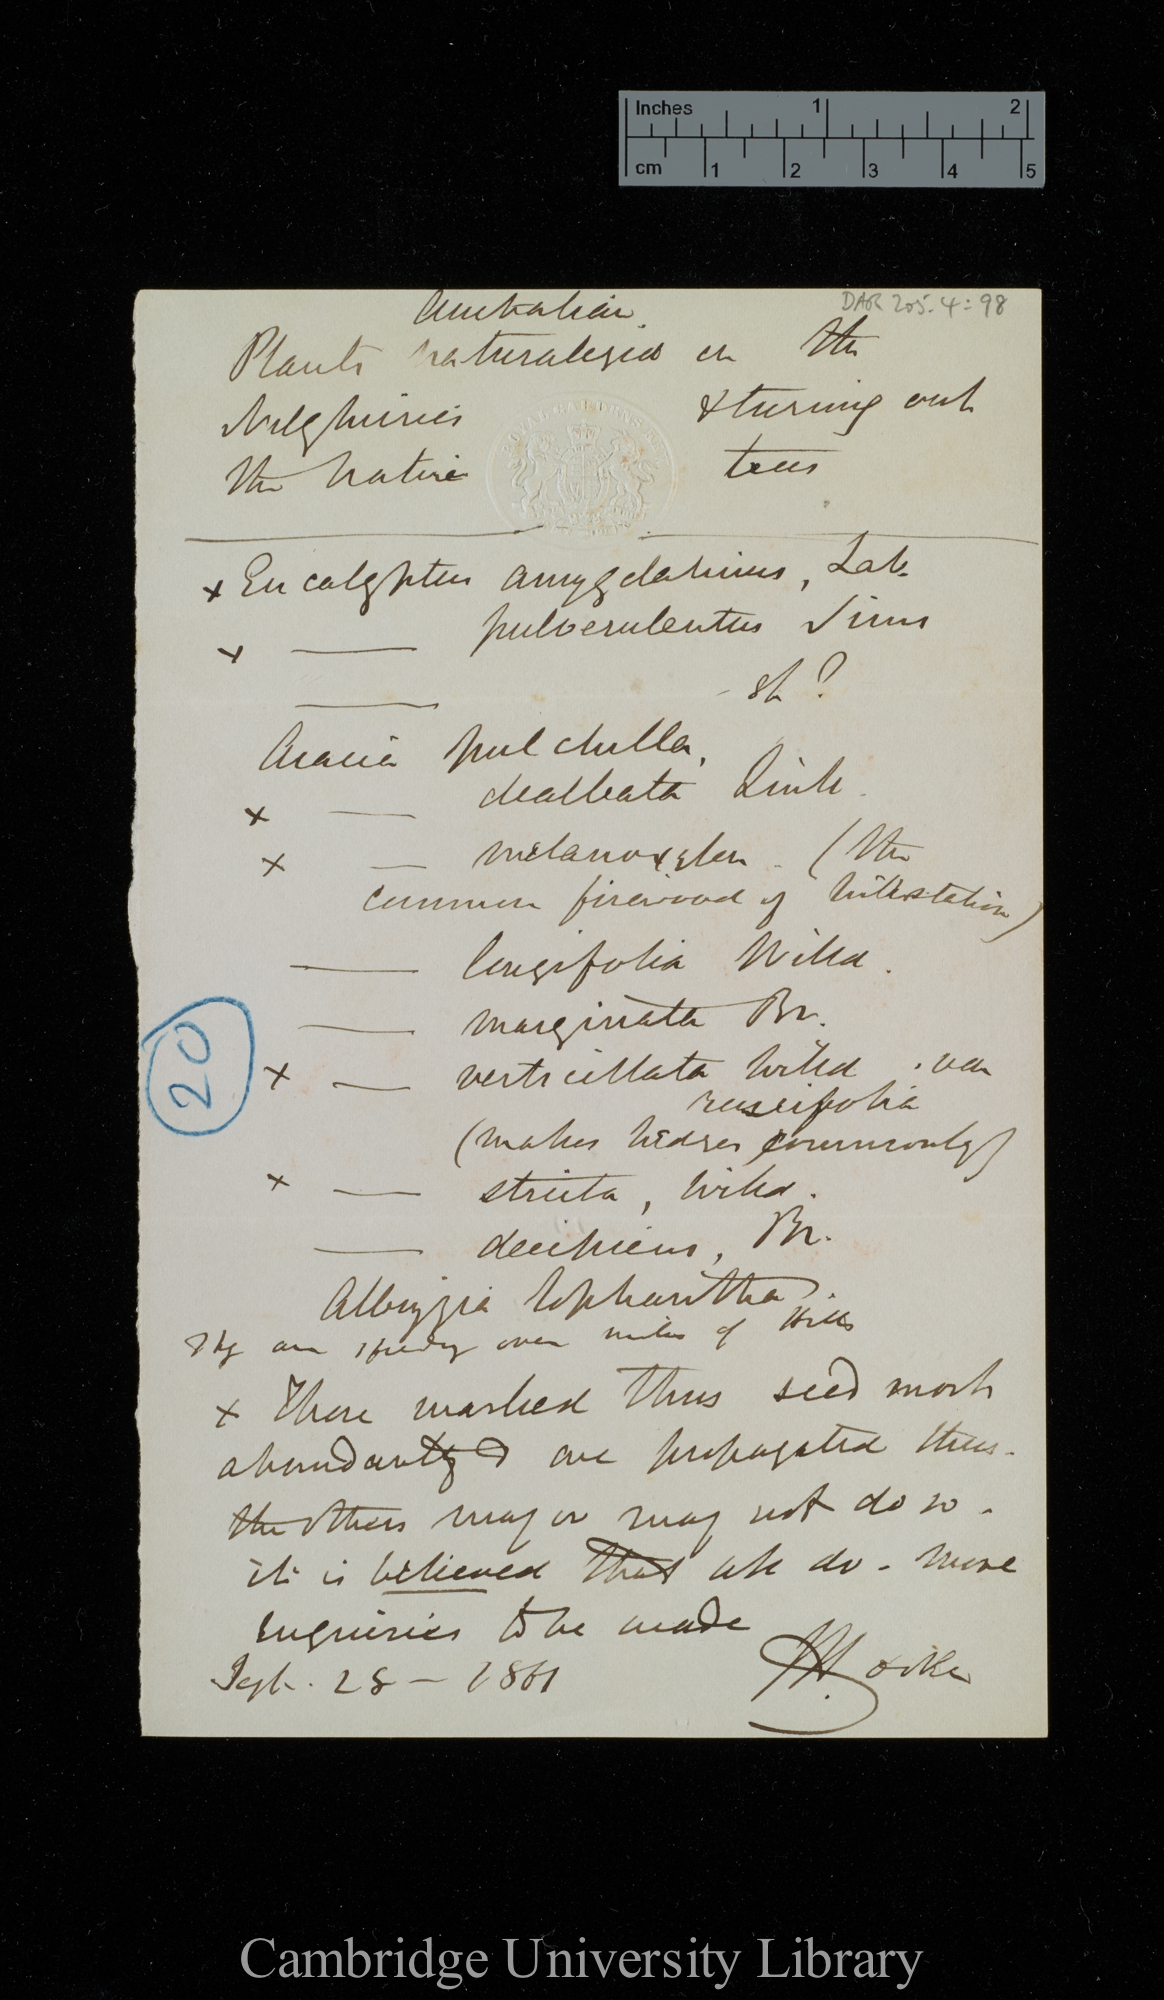 Inches 1 2
cm 1 2 3 4 5
DAR 205.4: 98
Australian
Plants naturalized on the
Nilghiries & turning out
the native trees
x Eucalyptus amygdalinus, Lab.
x —— pulverulentus Sims
—— sp ?
Acacia pulchella,
x —— dealbata Link.
x — melanoxylon. (the
common firewood of hill station)
—— longifolia Willd.
—— marginata Br.
20
x — verticillata Willd. var
ruscifolia
(makes hedges commonly)
x — stricta, Willd.
—— decipiens, Br.
Albizzia lophantha
They are spreadg over miles of Hills
x Those marked thus seed most
abundantly & are propagated thus.
the others may or may not do so.
it is believed that all do. more
enquiries to be made
Sept. 28 — 1861 JDHooker
Cambridge University Library